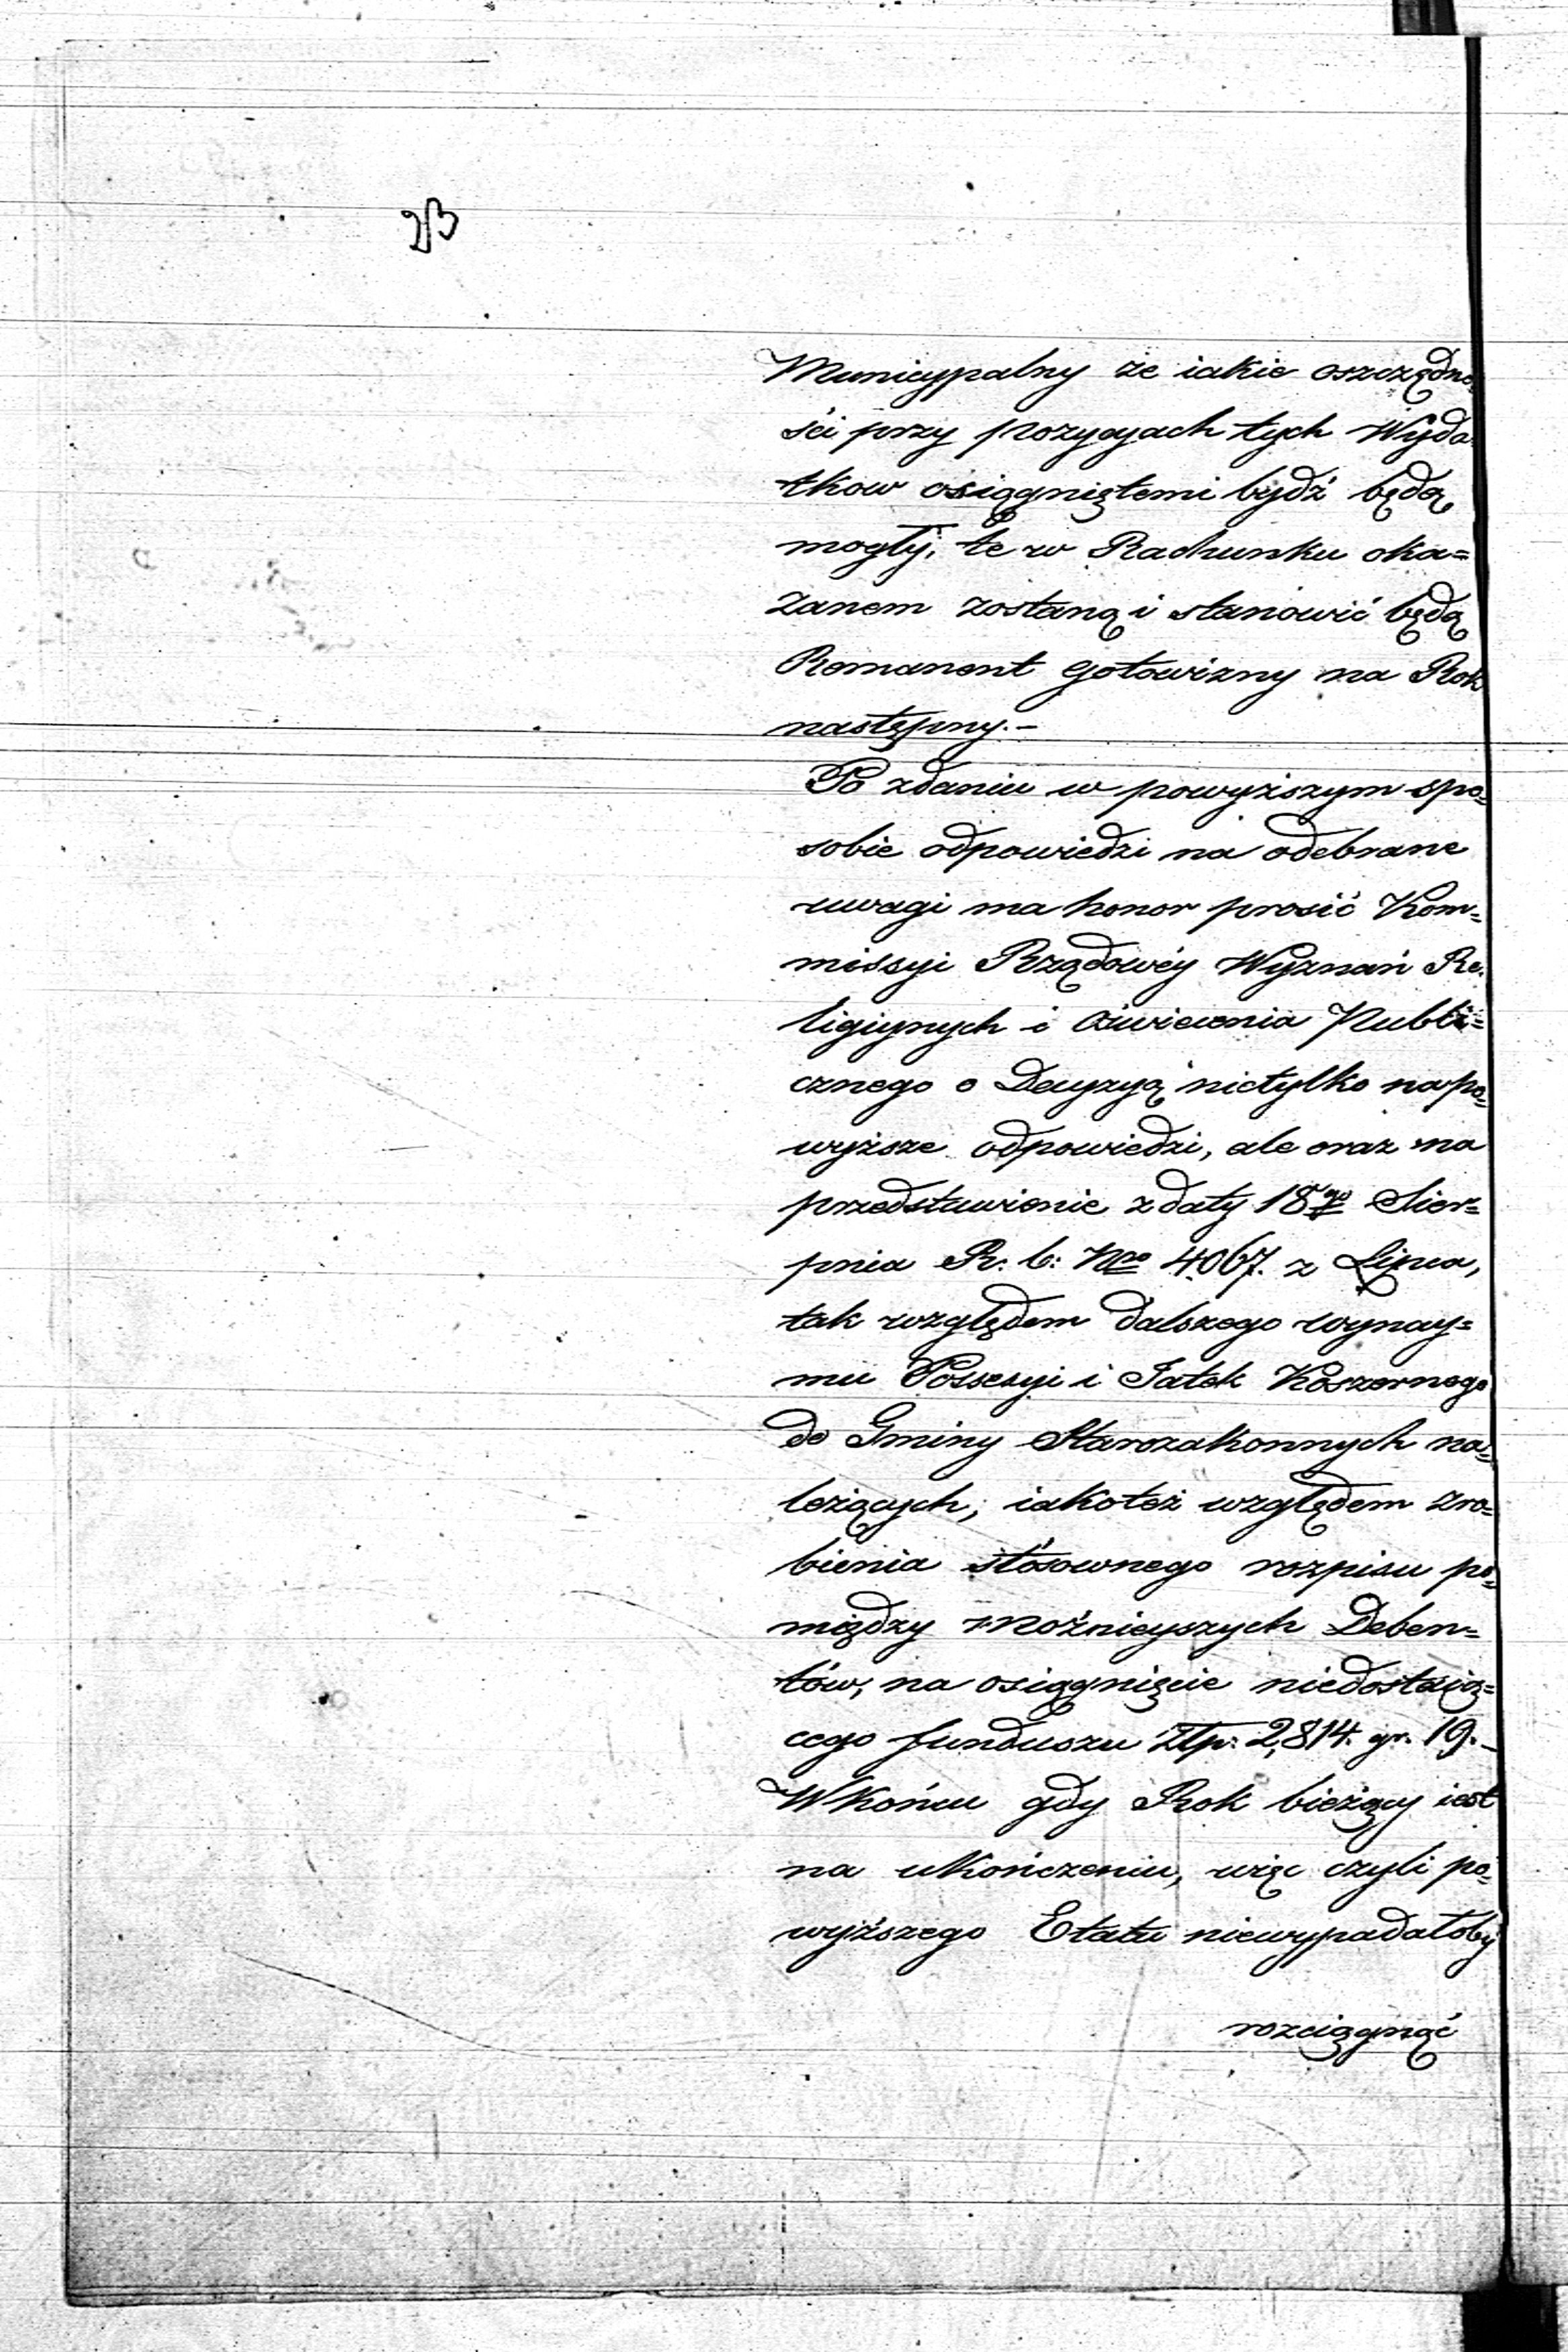 23
Municypalny że iakie oszczędno-
ści przy pozycyach tych Wyda-
tkow osiągniętemi bydź będą
mogły, te w Rachunku oka=
zanem zostaną i stanowić będą
Remanent gotowizny na Rok
następny.-
Po zdaniu w powyższym spo=
sobie odpowiedzi na odebrane
uwagi ma honor prosić Kom=
missyi Rządowéy Wyznań Re-
ligiynych i Oświecenia Publi=
cznego o Decyzyą nietylko na po=
wyższe odpowiedzi, ale oraz na
przedstawienie z daty 18go Sier=
pnia R. b: Nro 4067. z Lipca,
tak względem dalszego wynay=
mu Possesyi i Jatek Koszernego
do Gminy Starozakonnych na=
leżących; iakoteż względem zro=
bienia stósownego rozpisu po=
między możnieyszych Deben=
tów, na osiągnięcie niedostaią=
cego funduszu Złtp: 2,814. gr. 19.-
W Końcu gdy Rok bieżący iest
na ukończeniu, więc czyli po=
wyższego Etatu niewypadałoby
rozciągnąć